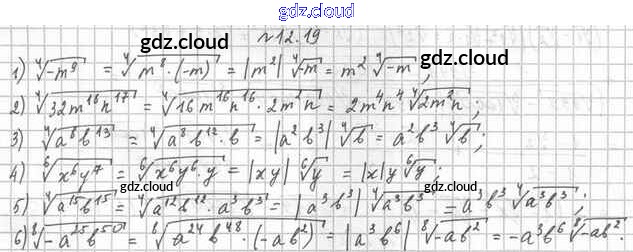 gdz.cloud
№12.19
gdz.cloud gdz.cloud
1) ∜(-m⁹) = ∜(m⁸·(-m)) = |m²| ∜(-m) = m² ∜(-m);
2) ∜(32m¹⁸n¹⁷) = ∜(16m¹⁶n¹⁶·2m²n) = 2m⁴n⁴ ∜(2m²n);
3) ∜(a⁸b¹³) = ∜(a⁸b¹²·b) = |a²b³| ∜b = a²b³ ∜b;
4) ⁶√(x⁶y⁷) = ⁶√(x⁶y⁶·y) = |xy| ⁶√y = |x|y ⁶√y;
gdz.cloud gdz.cloud
5) ∜(a¹⁵b¹⁵) = ∜(a¹²b¹²·a³b³) = |a³b³| ∜(a³b³) = a³b³ ∜(a³b³);
6) ⁸√(-a²⁵b⁵⁰) = ⁸√(a²⁴b⁴⁸·(-ab²)) = |a³b⁶| ⁸√(-ab²) = -a³b⁶ ⁸√(-ab²)